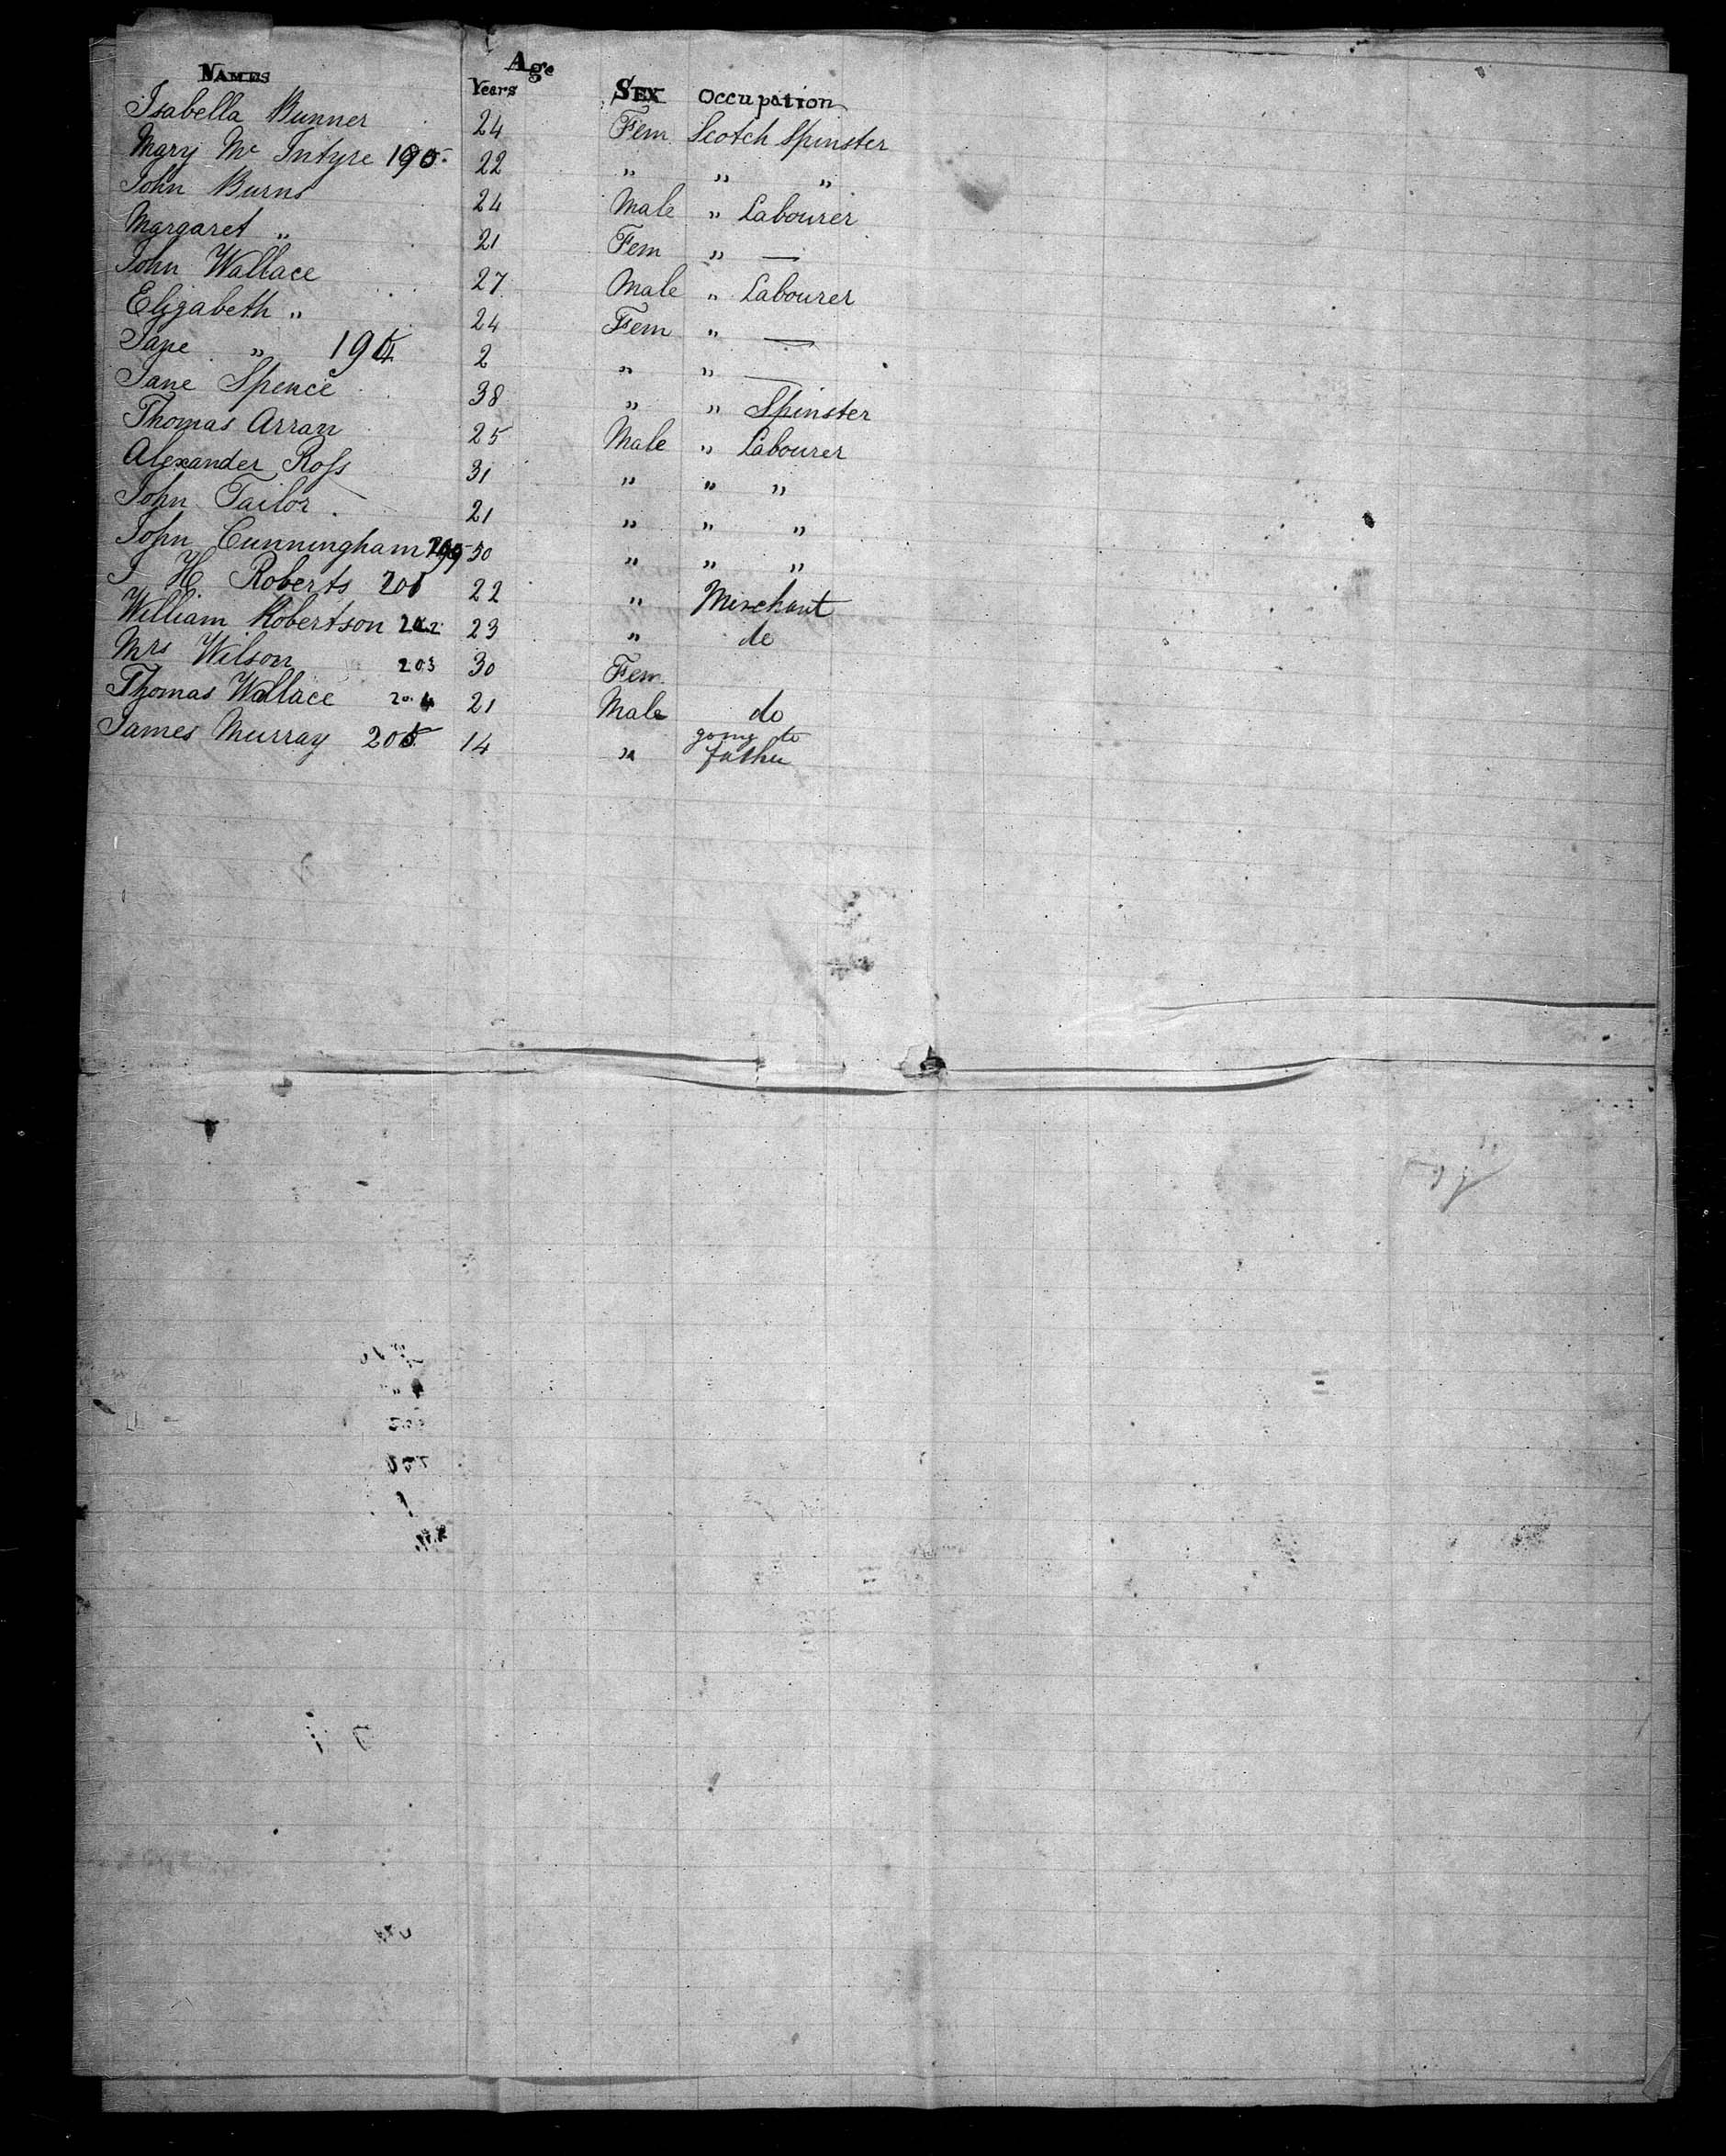 NAMES Age
Years SEX Occupation
Isabella Bunner 24 Fem Scotch Spinster
Mary Mc Intyre 190 22 " " "
John Burns 24 Male " Labourer
Margaret " 21 Fem " —
John Wallace 27 Male " Labourer
Elizabeth " 24 Fem " —
Jane " 2 " " —
Jane Spence 38 " " Spinster
Thomas Arran 25 Male " Labourer
Alexander Ross 31 " " "
John Tailor 21 " " "
John Cunningham 30 " " "
J H Roberts 201 22 " Merchant
William Robertson 202 23 " do
Mrs Wilson 203 30 Fem
Thomas Wallace 204 21 Male do
James Murray 205 14 " going to
father